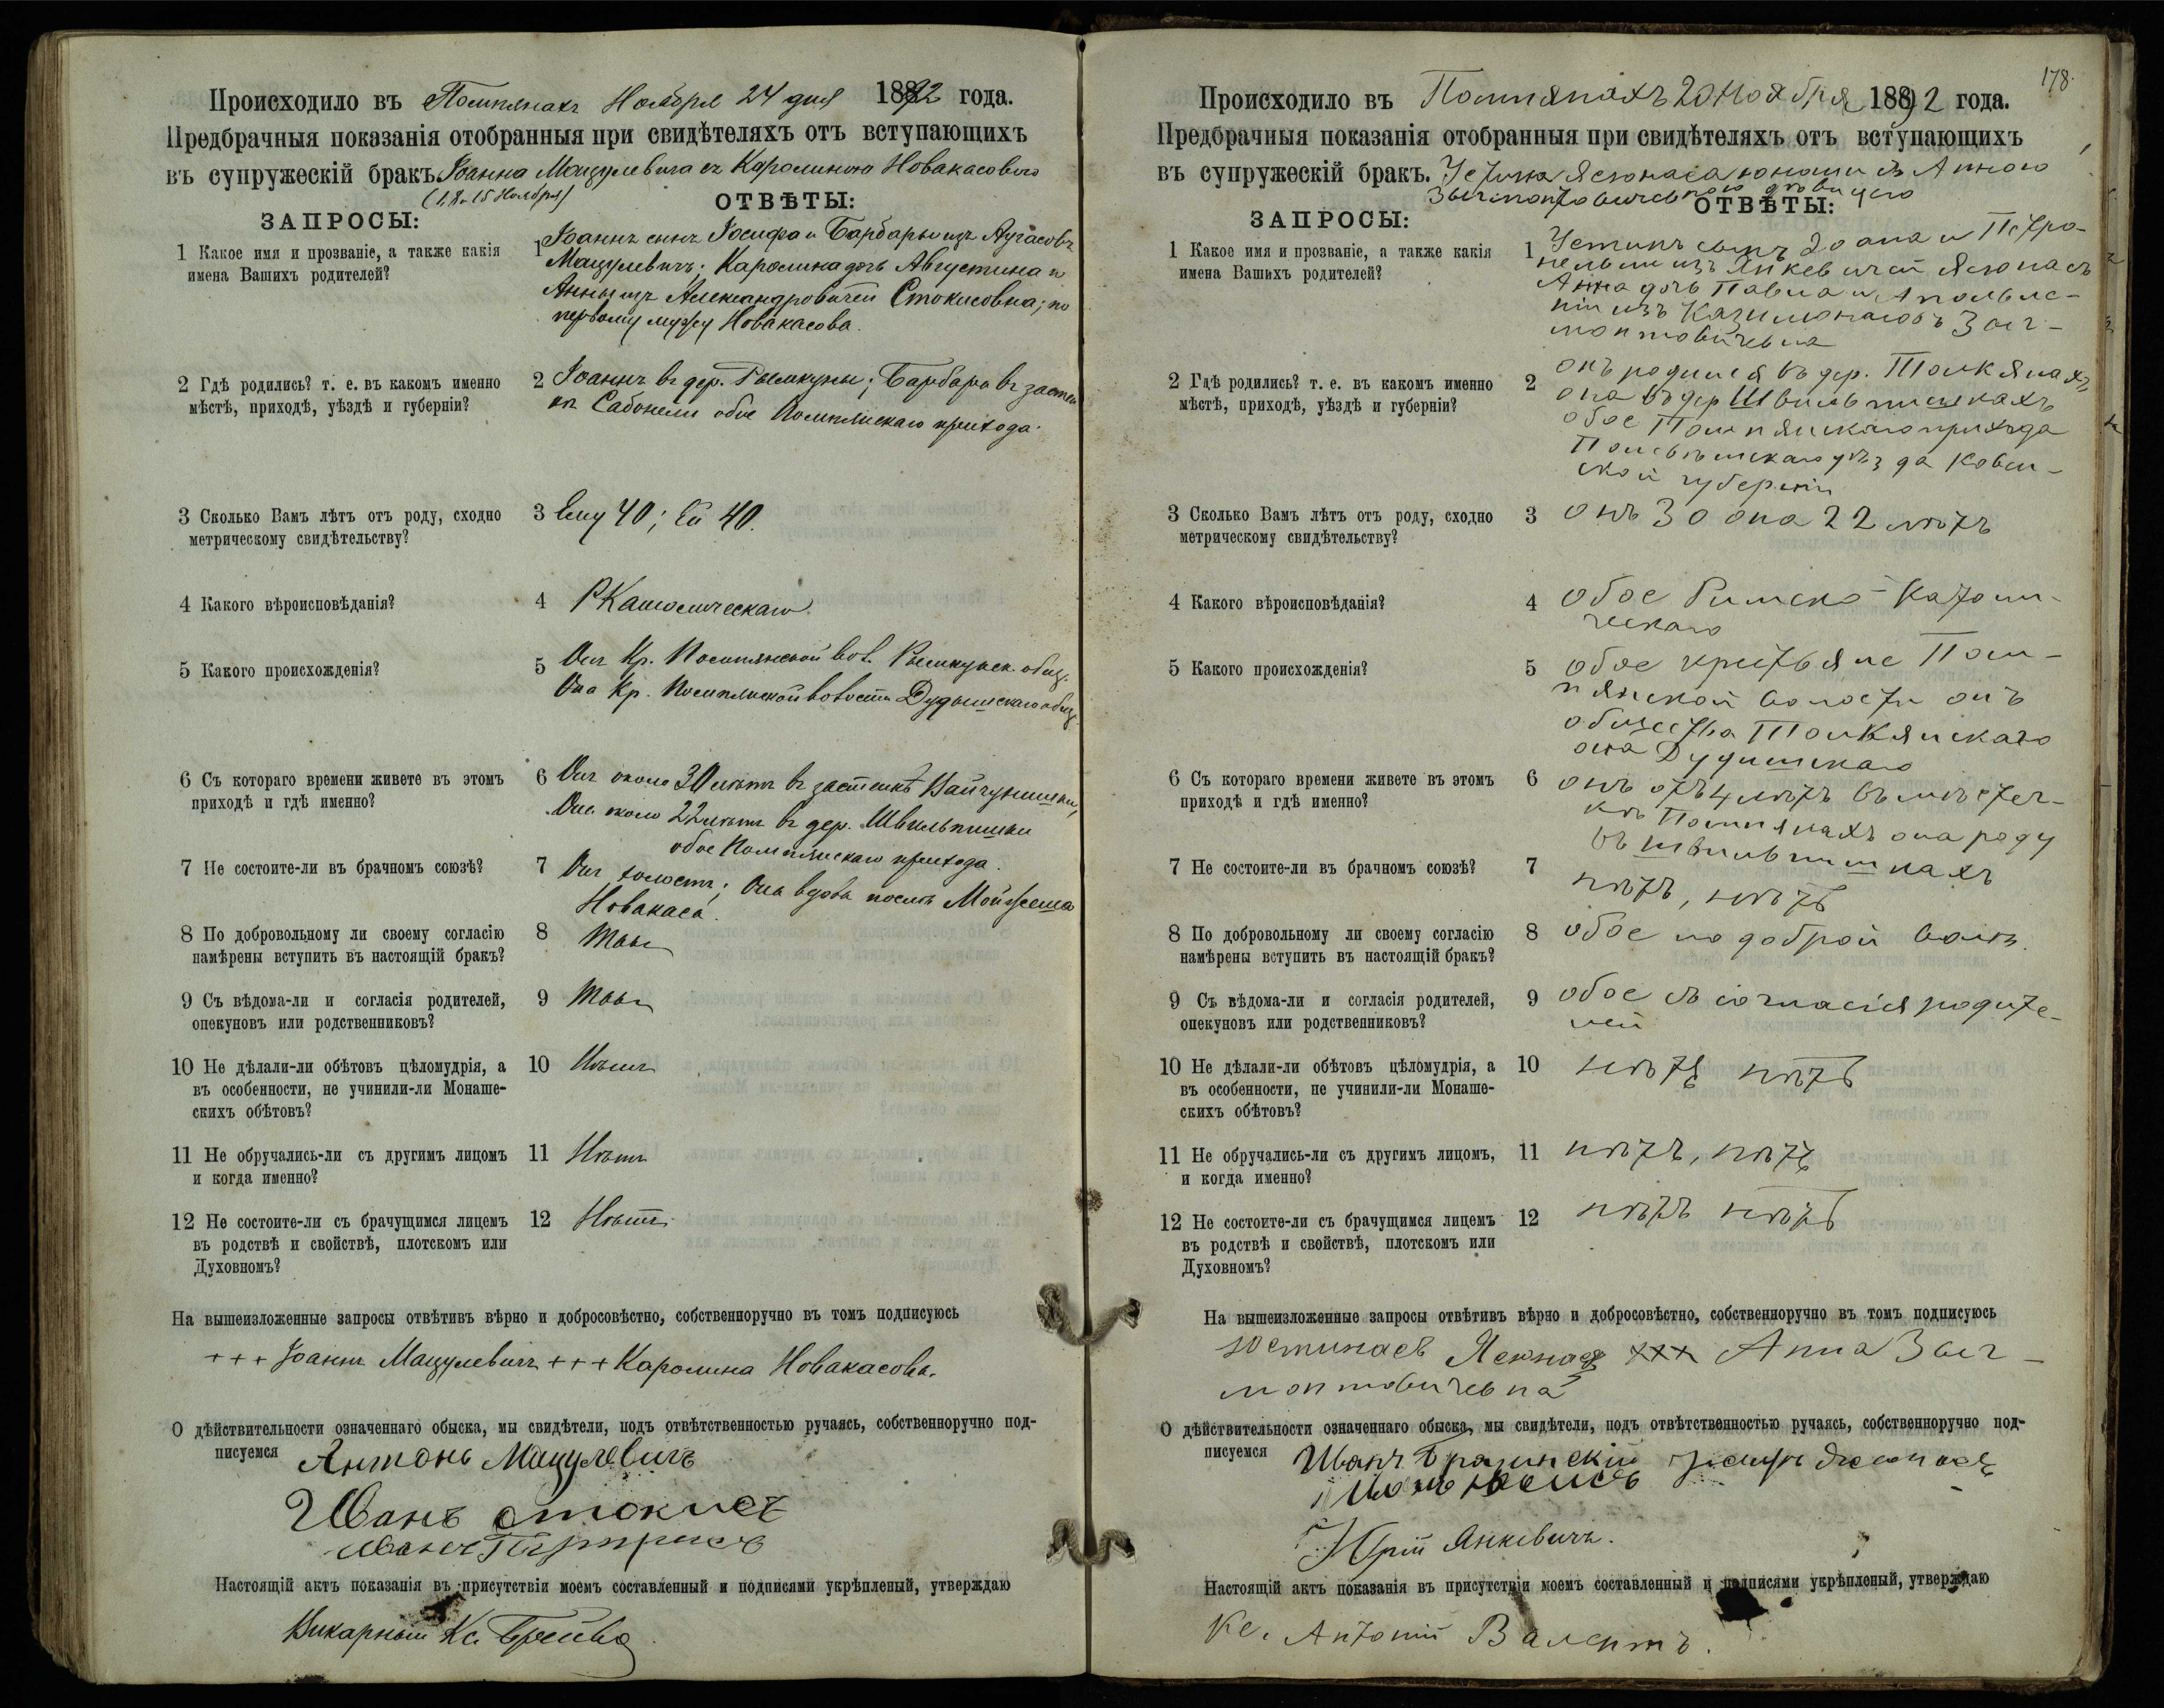 Происходило въ Помпянахъ Ноября 24 дня 1892 года.
Предбрачныя показанія отобранныя при свидѣтеляхъ отъ вступающихъ
въ супружескій бракъ. Іоанна Мацулевича съ Каролиною Новакасовою
(1, 8 и 15 Ноября)
ЗАПРОСЫ:
ОТВѢТЫ:
1 Какое имя и прозваніе, а также какія
имена Вашихъ родителей?
1 Іоаннъ сынъ Іосифа и Барбары изъ
Мацулевичъ; Каролина дочь Августина и
Анны изъ Александровичей Стокисовна; по
первому мужу Новакасова.
2 Гдѣ родились? т. е. въ какомъ именно
мѣстѣ, приходѣ, уѣздѣ и губерніи?
2 Іоаннъ въ дер. Рымкуны; Барбара въ застен
кѣ Сабонели обое Помпянскаго прихода.
3 Сколько Вамъ лѣтъ отъ роду, сходно
метрическому свидѣтельству?
3 Ему 40; Ей 40.
4 Какого вѣроисповѣданія?
4 РКатолическаго.
5 Какого происхожденія?
5 Онъ Кр. Помпянской вол. Рымкунск. общ.
Она Кр. Помпянской волости Дудышскаго общ.
6 Съ котораго времени живете въ этомъ
приходѣ и гдѣ именно?
6 Онъ около 30 лѣтъ въ застенкѣ Вайчунишки,
Она около 22 лѣтъ въ дер. Швильпишки
обое Помпянскаго прихода.
7 Не состоите-ли въ брачномъ союзѣ?
7 Онъ холостъ; Она вдова послѣ Мойжеша
Новакаса.
8 По добровольному ли своему согласію
намѣрены вступить въ настоящій бракъ?
8
9 Съ вѣдома-ли и согласія родителей,
опекуновъ или родственниковъ?
9
10 Не дѣлали-ли обѣтовъ цѣломудрія, а
въ особенности, не учинили-ли Монаше-
скихъ обѣтовъ?
10 Нѣтъ
11 Не обручались-ли съ другимъ лицомъ
и когда именно?
11 Нѣтъ
12 Не состоите-ли съ брачущимся лицемъ
въ родствѣ и свойствѣ, плотскомъ или
Духовномъ?
12 Нѣтъ.
На вышеизложенные запросы отвѣтивъ вѣрно и добросовѣстно, собственноручно въ томъ подписуюсь
+ + + Іоаннъ Мацулевичъ + + + Каролина Новакасова.
О дѣйствительности означеннаго обыска, мы свидѣтели, подъ отвѣтственностью ручаясь, собственноручно под-
писуемся Антонъ Мацулевичъ
Иванъ Стокисъ
Иванъ
Настоящій актъ показанія въ присутствіи моемъ составленный и подписями укрѣпленый, утверждаю
Викарный Кс.
178.
Происходило въ Помпянахъ 20 Ноября 1892 года.
Предбрачныя показанія отобранныя при свидѣтеляхъ отъ вступающихъ
въ супружескій бракъ. Устина Ясюнаса юноши съ Анною
Зыгмонтовичевною дѣвицею
ЗАПРОСЫ:
ОТВѢТЫ:
1 Какое имя и прозваніе, а также какія
имена Вашихъ родителей?
1 Устинъ сынъ Іоана и Петро-
нельи изъ Янкевичей Ясюнасъ
Анна дочь Павла и Апольле-
ніи изъ Зыг-
монтовичевна
2 Гдѣ родились? т. е. въ какомъ именно
мѣстѣ, приходѣ, уѣздѣ и губерніи?
2 онъ родился въ дер. Толкянахъ
она въ дер Швильпишкахъ
обое Помпянскаго прихода
Поневѣжскаго уѣзда Ковен-
ской губерніи
3 Сколько Вамъ лѣтъ отъ роду, сходно
метрическому свидѣтельству?
3 онъ 30 она 22 лѣтъ
4 Какого вѣроисповѣданія?
4 обое Римско-Католи-
ческаго
5 Какого происхожденія?
5 обое крестьяне Пом-
пянской волости онъ
общества Толкянскаго
она Дудишскаго
6 Съ котораго времени живете въ этомъ
приходѣ и гдѣ именно?
6 онъ отъ 4 лѣтъ въ мѣстеч-
кѣ Помпянахъ она роду
въ Швильпишкахъ
7 Не состоите-ли въ брачномъ союзѣ?
7 нѣтъ, нѣтъ
8 По добровольному ли своему согласію
намѣрены вступить въ настоящій бракъ?
8 обое по доброй волѣ.
9 Съ вѣдома-ли и согласія родителей,
опекуновъ или родственниковъ?
9 обое съ согласія родите-
лей
10 Не дѣлали-ли обѣтовъ цѣломудрія, а
въ особенности, не учинили-ли Монаше-
скихъ обѣтовъ?
10 нѣтъ нѣтъ
11 Не обручались-ли съ другимъ лицомъ,
и когда именно?
11 нѣтъ, нѣтъ
12 Не состоите-ли съ брачущимся лицемъ
въ родствѣ и свойствѣ, плотскомъ или
Духовномъ?
12 нѣтъ нѣтъ
На вышеизложенные запросы отвѣтивъ вѣрно и добросовѣстно, собственноручно въ томъ подписуюсь
Юстинасъ Яснасъ +++ Анна Зыг-
монтовичевна
О дѣйствительности означеннаго обыска, мы свидѣтели, подъ отвѣтственностью ручаясь, собственноручно под-
писуемся Иванъ
Юрій Янкевичъ.
Настоящій актъ показанія въ присутствіи моемъ составленный и подписями укрѣпленый, утверждаю
Кс. Антоній Валентъ.